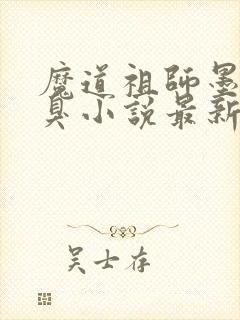 魔道祖師墨
臭小説最新
吴士存